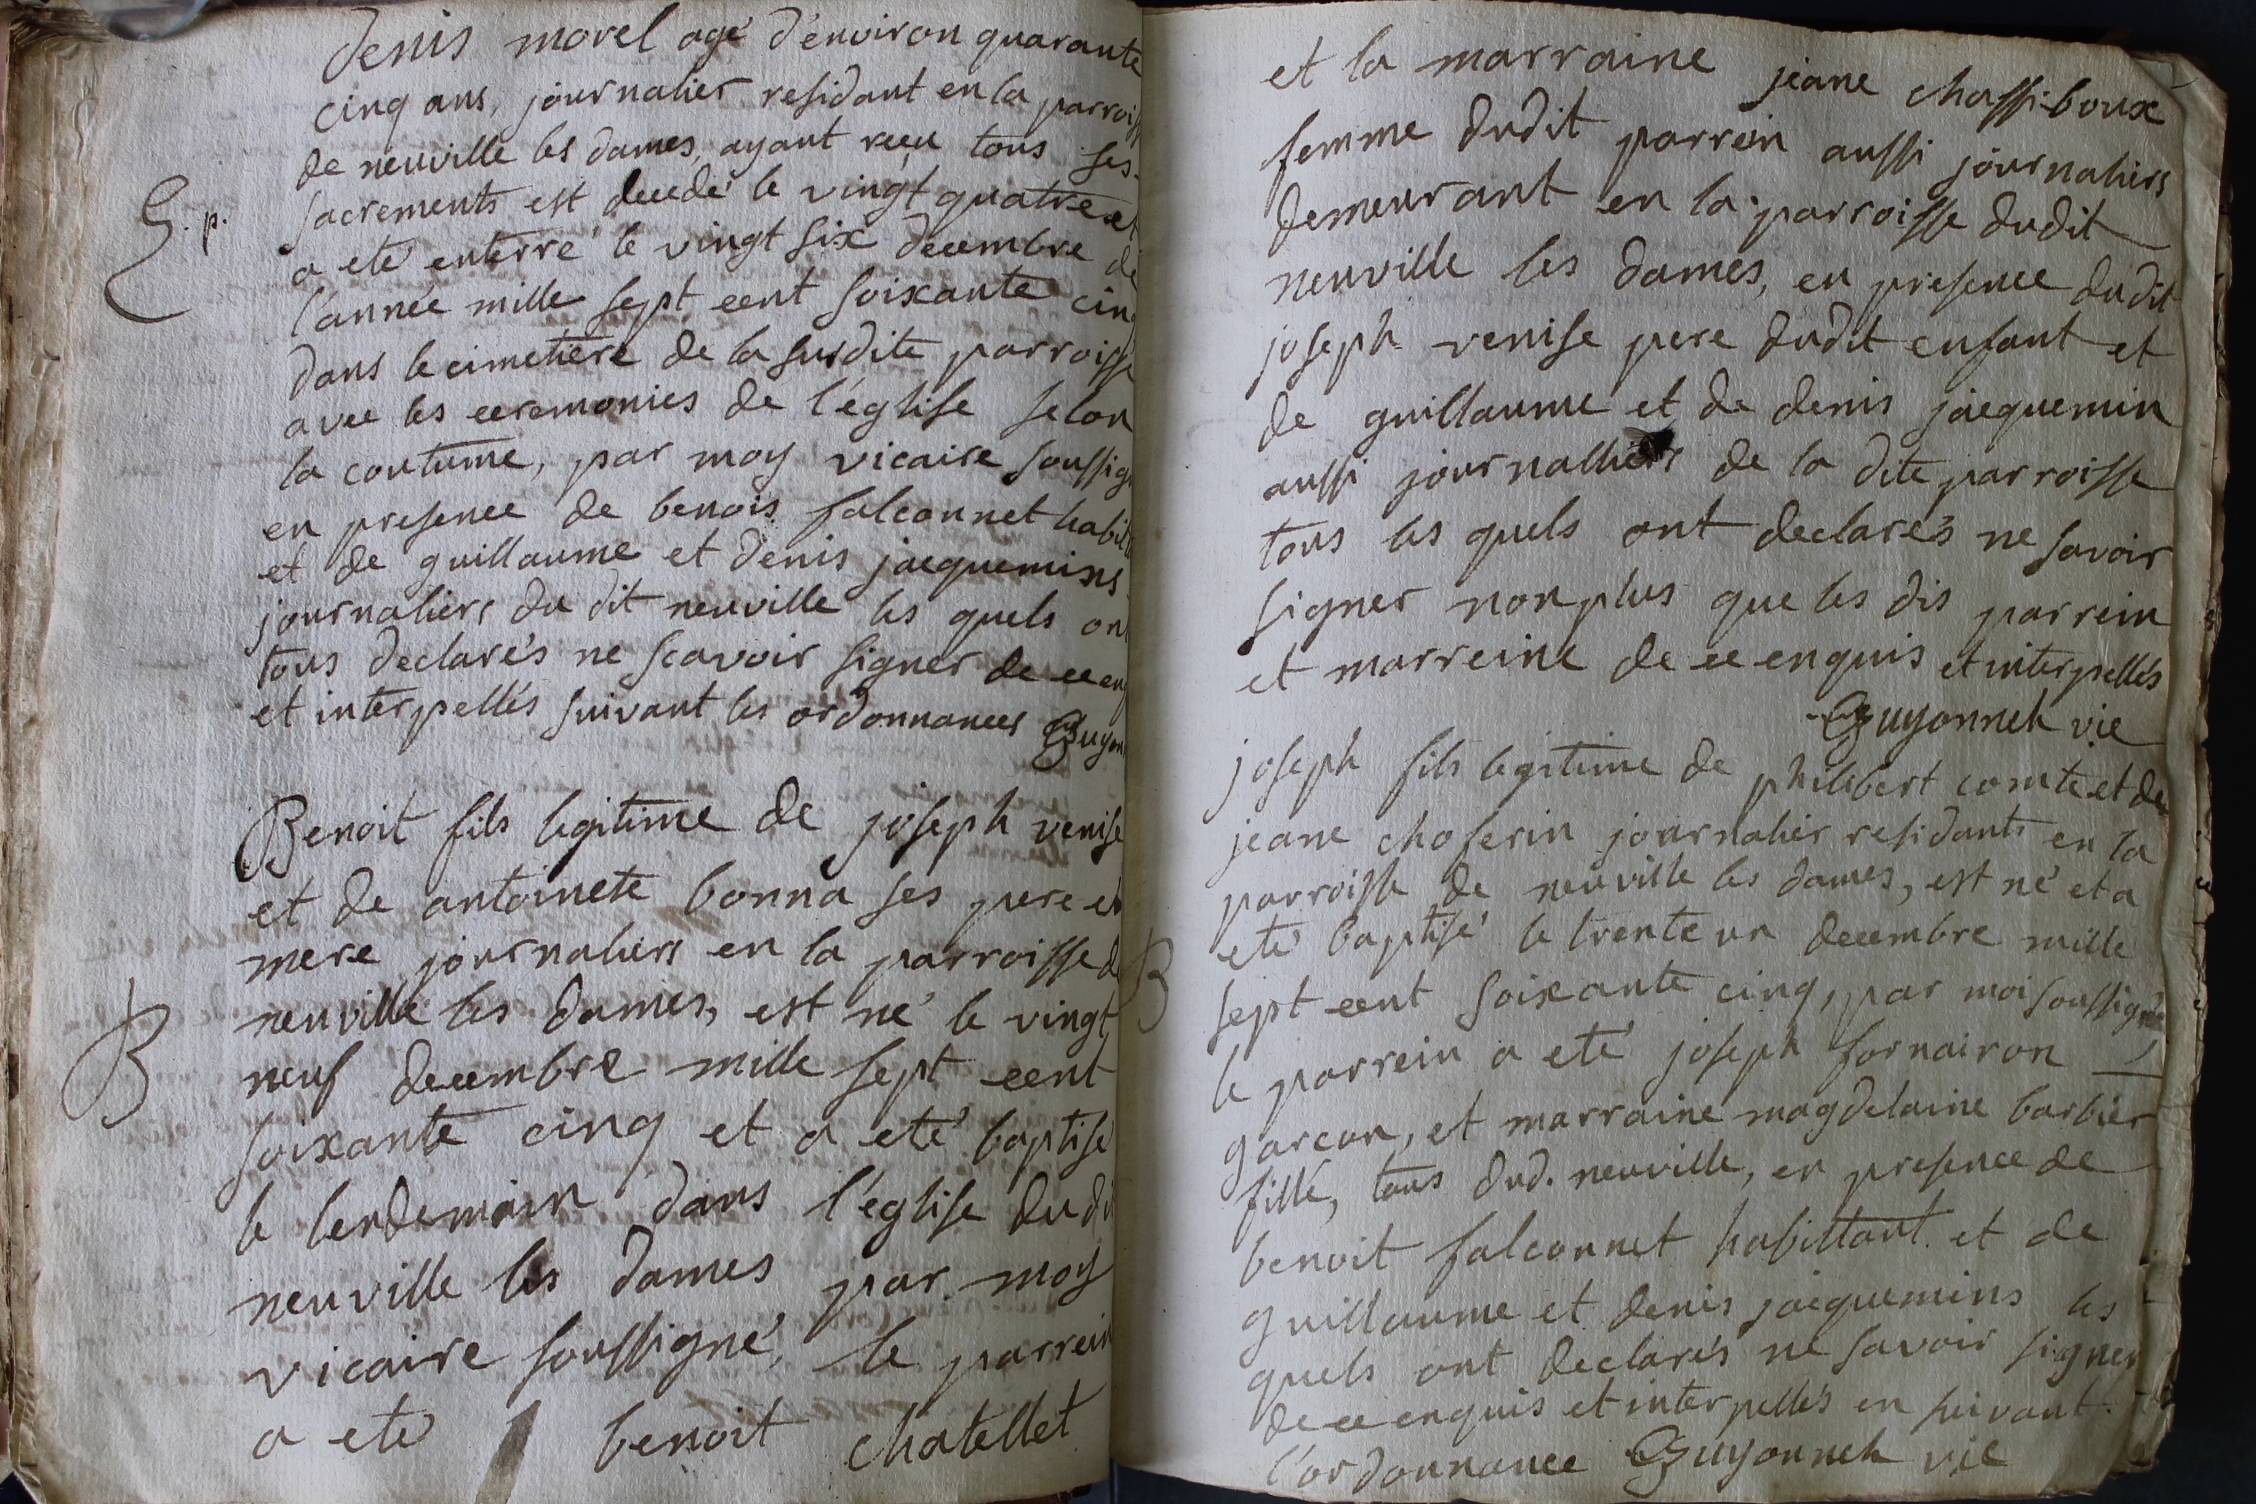 denis morel agé d'environ quarante
cinq ans, journalier residant en la parroiss
de neuville les dames, ayant reçu tous ses
S. p.
sacrements est decedé le vingt quatre et
a eté enterré le vingt six decembre de
l'année mille sept cent soixante cinq
dans le cimetiere de la surdite parroisse
avec les ceremonies de l'église selon
la coutume, par moy vicaire soussign
en presence de benois falconnet habit
et de guillaume et denis jacquemins
journaliers du dit neuville les quels ont
tous declarés ne scavoir signer de ce enq
et interpellés suivant les ordonnances Guyon
Benoit fils legitime de joseph venise
et de antoinete bonna ses pere et
mere journaliers en la parroisse d
B
neuville les dames, est né le vingt
neuf decembre mille sept cent
soixante cinq et a eté baptisé
le lendemain dans l'église dudi
neuville les dames par moy
vicaire soussigné, le parrein
a eté benoit chatellet
et la marraine jeane chassi-boux
femme dudit parrein aussi journaliers
demeurant en la parroisse dudit
neuville les dames, en presence dudit
joseph venise pere dudit enfant et
de guillaume et de denis jacquemin
aussi journalliers de la dite parroisse
tous les quels ont declarés ne savoir
signer non plus que les dis parrein
et marreine de ce enquis et interpellés
Guyonneh vic
joseph fils legitime de philibert comte et de
jeane choserin journalier residants en la
parroisse de neuville les dames, est né et a
eté baptisé le trente un decembre mille
B
sept cent soixante cinq, par moi soussigné
le parrein a eté joseph fornairon
garcon, et marraine magdelaine barbier
fille, tous dud. neuville, en presence de
benoit falconnet habittant et de
guillaume et denis jacquemins les
quels ont declarés ne savoir signer
de ce enquis et interpellés en suivant
l'ordonnance Guyonneh vic